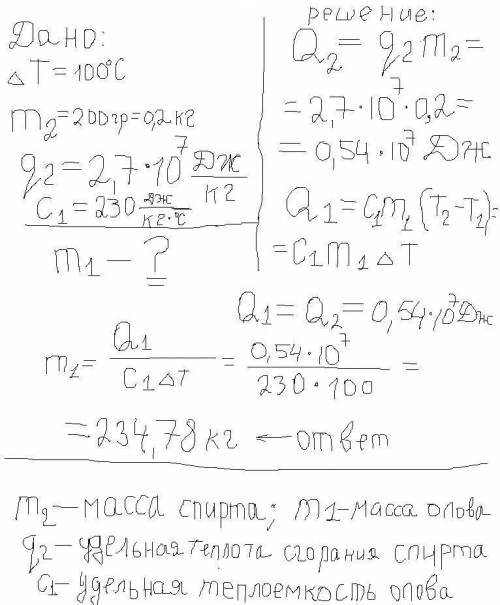 Дано:
ΔT=100°C
m2=200гр=0,2кг
q2=2,7·10^7 Дж/кг
C1=230 Дж/кг·°C
m1-?
решение:
Q2=q2m2=
=2,7·10^7·0,2=
=0,54·10^7 Дж
Q1=C1m1(T2-T1)=
=C1m1ΔT
Q1=Q2=0,54·10^7Дж
m1=Q1/C1ΔT=0,54·10^7/230·100=
=234,78кг ←ответ
m2-масса спирта; m1-масса олова
q2-удельная теплота сгорания спирта
c1-удельная теплоемкость олова